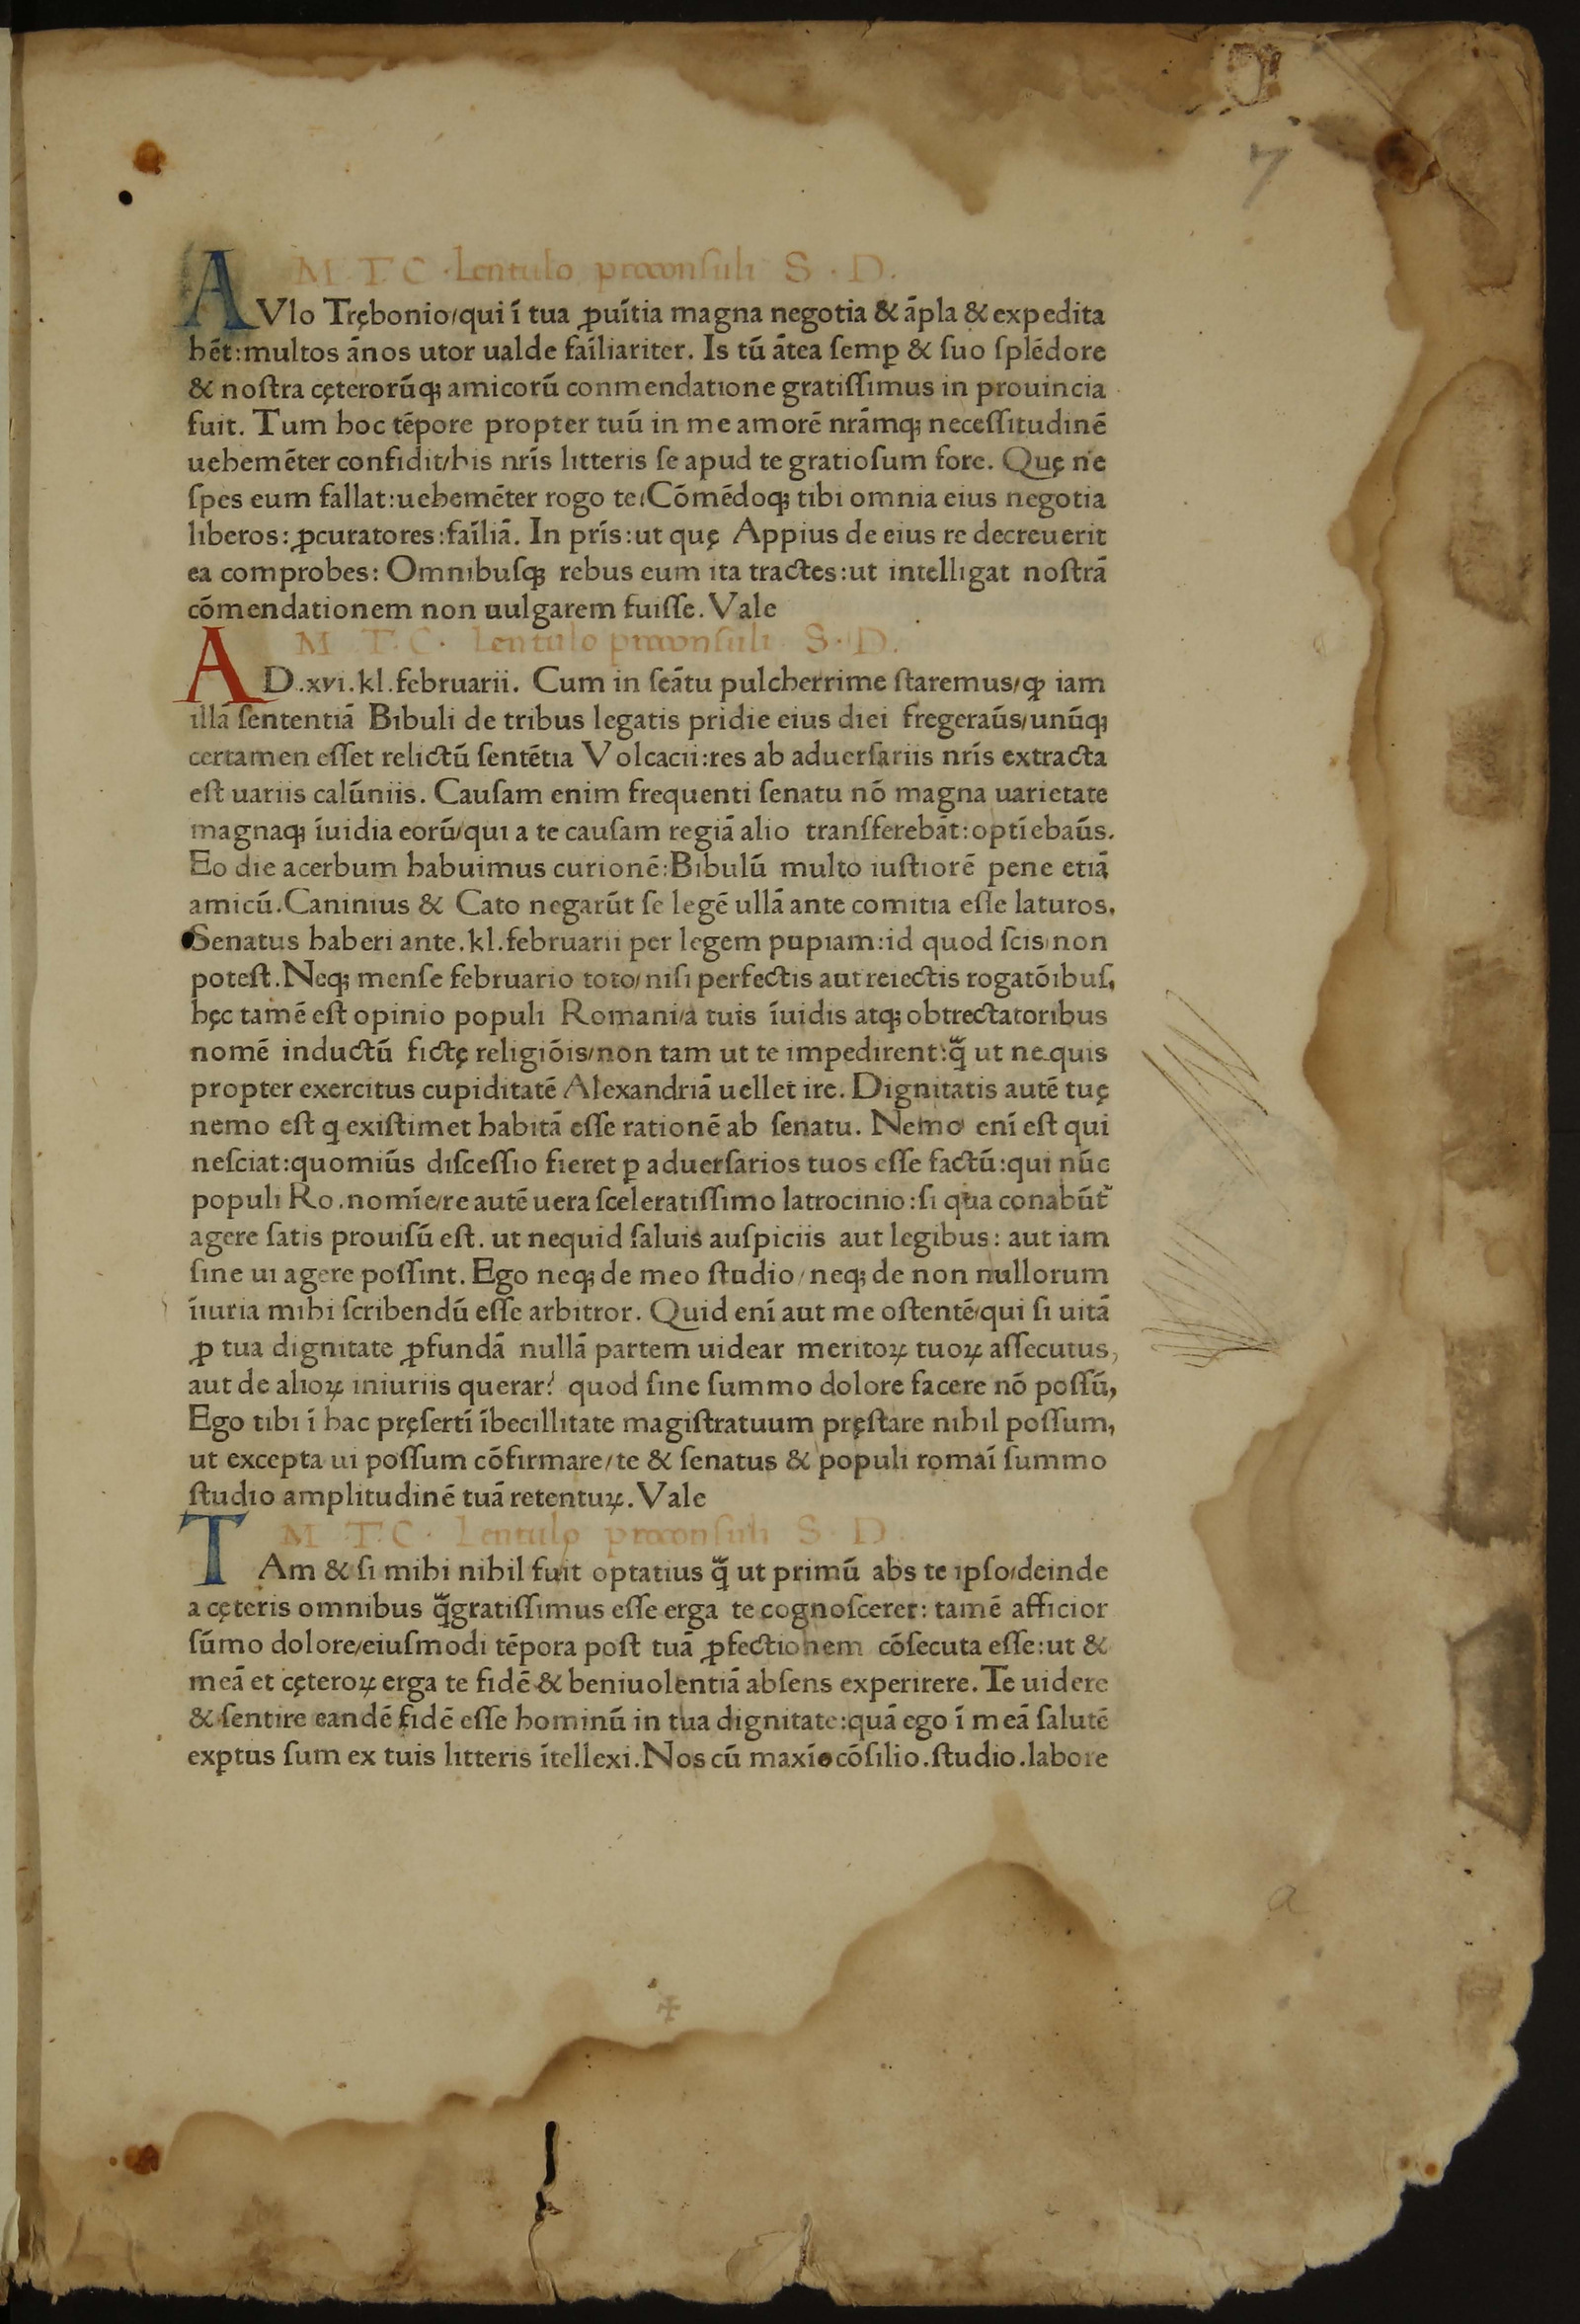 7
M. T. C. Lentulo proconsuli S. D.
AVlo Trębonio/qui ĩ tua ꝓuĩtia magna negotia & ãpla & expedita
hẽt:multos ãnos utor ualde faĩliariter. Is tũ ãtea ſemꝑ & ſuo ſplẽdore
& noſtra cęterorũqꝫ amicorũ conmendatione gratiſſimus in prouincia
fuit. Tum hoc tẽpore propter tuũ in me amorẽ nrãmqꝫ neceſſitudinẽ
uehemẽter confidit/his nrĩs litteris ſe apud te gratioſum fore. Quę ne
ſpes eum fallat:uehemẽter rogo te/Cõmẽdoqꝫ tibi omnia eius negotia
liberos:ꝓcuratores:faĩliã. In prĩs:ut quę Appius de eius re decreuerit
ea comprobes: Omnibuſqꝫ rebus eum ita tractes:ut intelligat noſtrã
cõmendationem non uulgarem fuiſſe. Vale
M. T. C. Lentulo proconsuli S. D.
AD.xvi.kl.februarii. Cum in ſeãtu pulcherrime ſtaremus/ꝙ iam
illã ſententiã Bibuli de tribus legatis pridie eius diei fregeraũs/unũqꝫ
certamen eſſet relictũ ſentẽtia Volcacii:res ab aduerſariis nrĩs extracta
eſt uariis calũniis. Cauſam enim frequenti ſenatu nõ magna uarietate
magnaqꝫ ĩuidia eorũ/qui a te cauſam regiã alio tranſferebãt:optĩebaũs.
Eo die acerbum habuimus curionẽ:Bibulũ multo iuſtiorẽ pene etiã
amicũ.Caninius & Cato negarũt ſe legẽ ullã ante comitia eſſe laturos.
Senatus haberi ante.kl.februarii per legem pupiam:id quod ſcis/non
poteſt.Neqꝫ menſe februario toto/niſi perfectis aut reiectis rogatõibuſ.
hęc tamẽ eſt opinio populi Romani/a tuis ĩuidis atqꝫ obtrectatoribus
nomẽ inductũ fictę religiõis/non tam ut te impedirent:q̃ ut ne quis
propter exercitus cupiditatẽ Alexandriã uellet ire. Dignitatis autẽ tuę
nemo eſt q exiſtimet habitã eſſe rationẽ ab ſenatu. Nemo enĩ eſt qui
neſciat:quomiũs diſceſſio fieret ꝑ aduerſarios tuos eſſe factũ:qui nũc
populi Ro.nomĩe/re autẽ uera ſceleratiſſimo latrocinio:ſi qua conabũt᷑
agere ſatis prouiſũ eſt. ut nequid ſaluis auſpiciis aut legibus: aut iam
ſine ui agere poſſint. Ego neqꝫ de meo ſtudio/neqꝫ de non nullorum
ĩiuria mihi ſcribendũ eſſe arbitror. Quid enĩ aut me oſtentẽ/qui ſi uitã
ꝓ tua dignitate ꝓfundã nullã partem uidear meritoꝝ tuoꝝ aſſecutus,
aut de alioꝝ iniuriis querar? quod ſine ſummo dolore facere nõ poſſũ,
Ego tibi ĩ hac pręſertĩ ĩbecillitate magiſtratuum pręſtare nihil poſſum,
ut excepta ui poſſum cõfirmare/te & ſenatus & populi romaĩ ſummo
ſtudio amplitudinẽ tuã retentuꝝ. Vale
M. T. C. Lentulo proconsuli S. D.
TAm & ſi mihi nihil fuit optatius q̃ ut primũ abs te ipſo/deinde
a cęteris omnibus q̃gratiſſimus eſſe erga te cognoſcerer: tamẽ afficior
ſũmo dolore/eiuſmodi tẽpora poſt tuã ꝓfectionem cõſecuta eſſe:ut &
meã et cęteroꝝ erga te fidẽ & beniuolentiã abſens experirere. Te uidere
& ſentire eandẽ fidẽ eſſe hominũ in tua dignitate:quã ego ĩ meã ſalutẽ
exꝑtus ſum ex tuis litteris ĩtellexi.Nos cũ maxĩe cõſilio.ſtudio.labore
a